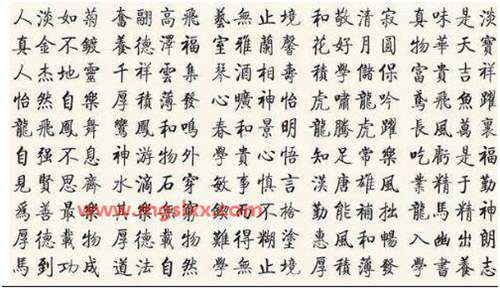 人淡如菊 奮翮高飛 藝無止境 和敬清寂 真味是淡
真金不鍍 養德澤福 室雅蘭馨 花好月圓 物華天寶
人杰地靈 千祥雲集 琴酒相壽 學儲 富貴吉祥
怡然自樂 厚積薄發 心曠神怡 虎嘯龍吟 鳶飛魚躍
龍飛鳳舞 鸞鳳和鳴 春和景明 龍騰虎躍 長風萬裏
自强不息 神游物外 學貴心悟 知足常樂 吃虧是福
見賢思齊 水滴石穿 敏事慎言 漢唐雄風 業精于勤
爲善最樂 物 而不 勤能補拙 龍馬精神
厚德載物 厚德載物 難得糊塗 惠風和暢 入幽出朗
馬到功成 道法自然 學無止境 厚積薄發 學書養志